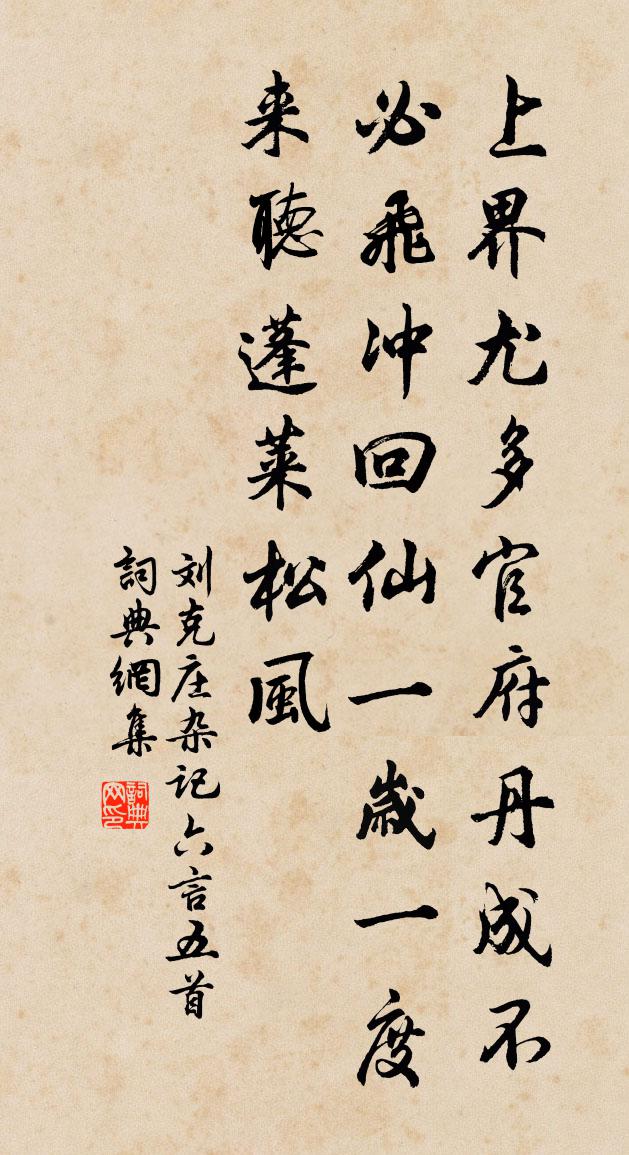 上界尤多官府丹成不
必飛冲回仙一歲一度
来聽蓬萊松風
刘克庄杂记六言五首
詞典網集
詞典网印